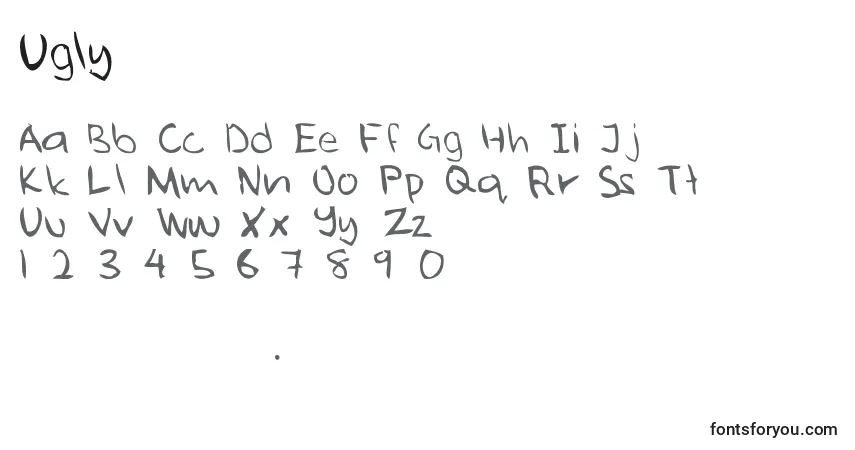 Ugly
Aa Bb Cc Dd Ee Ff Gg Hh Ii Jj
Kk Ll Mm Nn Oo Pp Qq Rr Ss Tt
Uu Vv Ww Xx Yy Zz
1 2 3 4 5 6 7 8 9 0
.
fontsforyou.com